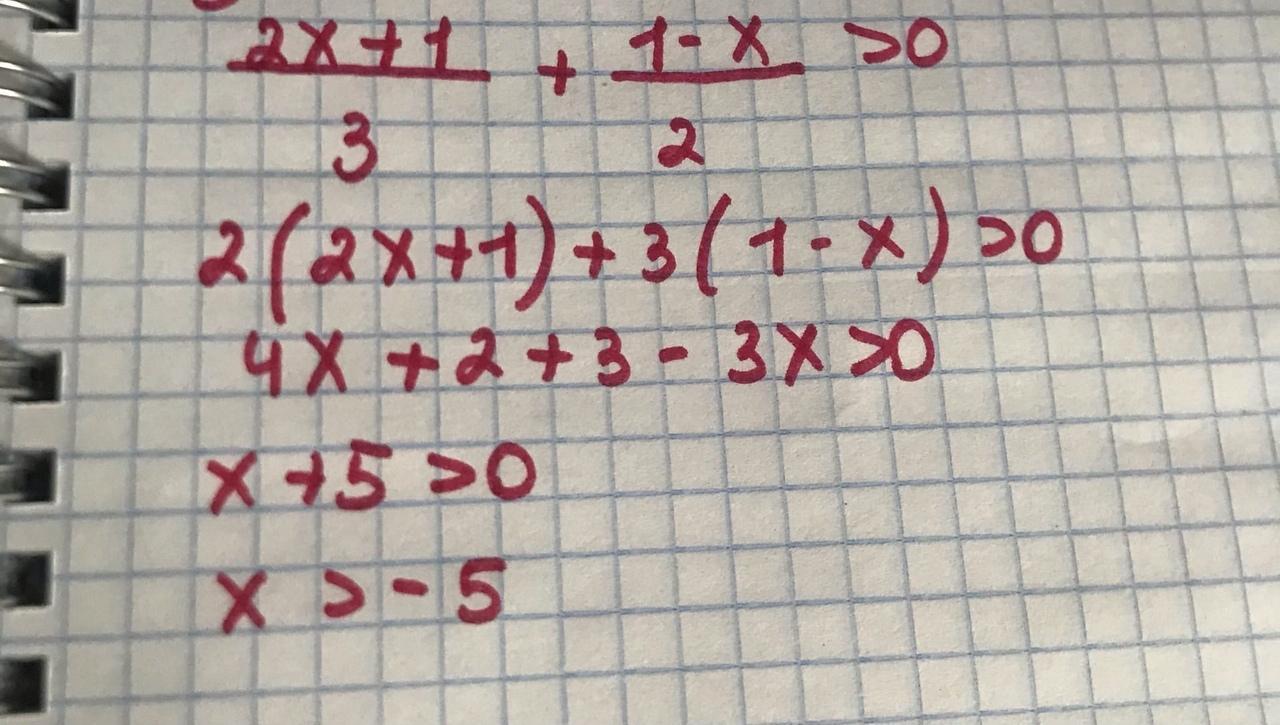 2x+1/3 + 1-x/2 >0
2(2x+1)+3(1-x)>0
4x+2+3-3x>0
x+5>0
x>-5